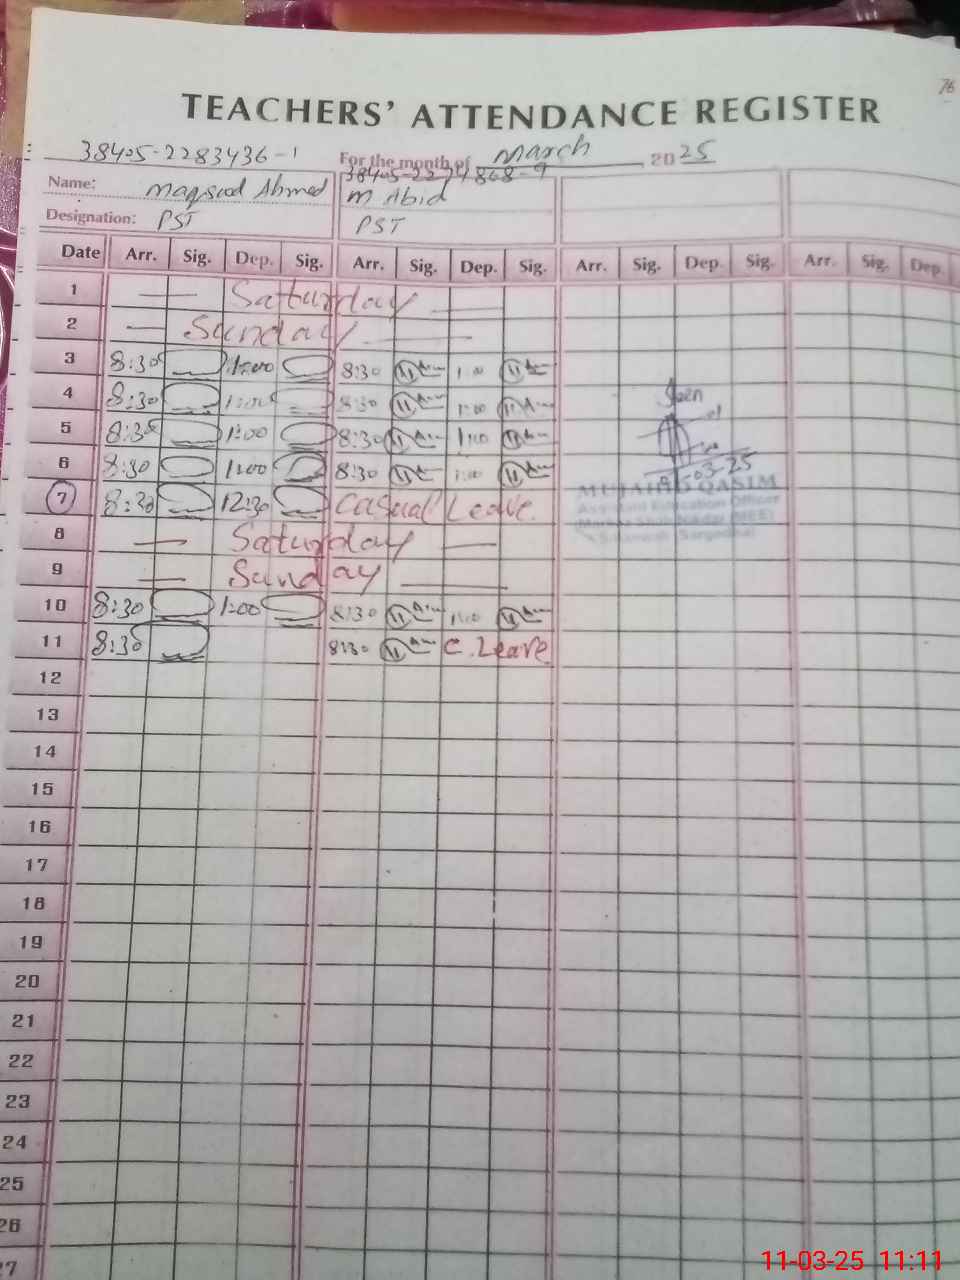 76
TEACHERS' ATTENDANCE REGISTER
38405-2283436-1 For the month of March 2025
38405-2274868-9
Name: Maqsood Ahmed M Abid
Designation: PST PST
Date Arr. Sig. Dep. Sig. Arr. Sig. Dep. Sig. Arr. Sig. Dep. Sig. Arr. Sig. Dep.
1 Saturday
2 Sunday
3 8:30 1:00 8:30 1:00
4 8:30 1:00 8:30 1:00
5 8:30 1:00 8:30 1:00
6 8:30 1:00 8:30 1:00
7 8:30 12:30 Casual Leave.
8 Saturday
9 Sunday
10 8:30 1:00 8:30 1:00
11 8:30 8:30 C. Leave
Seen
03-25
MUJAHID QASIM
Assistant Education Officer
12
13
14
15
16
17
18
19
20
21
22
23
24
25
26
27
11-03-25 11:11